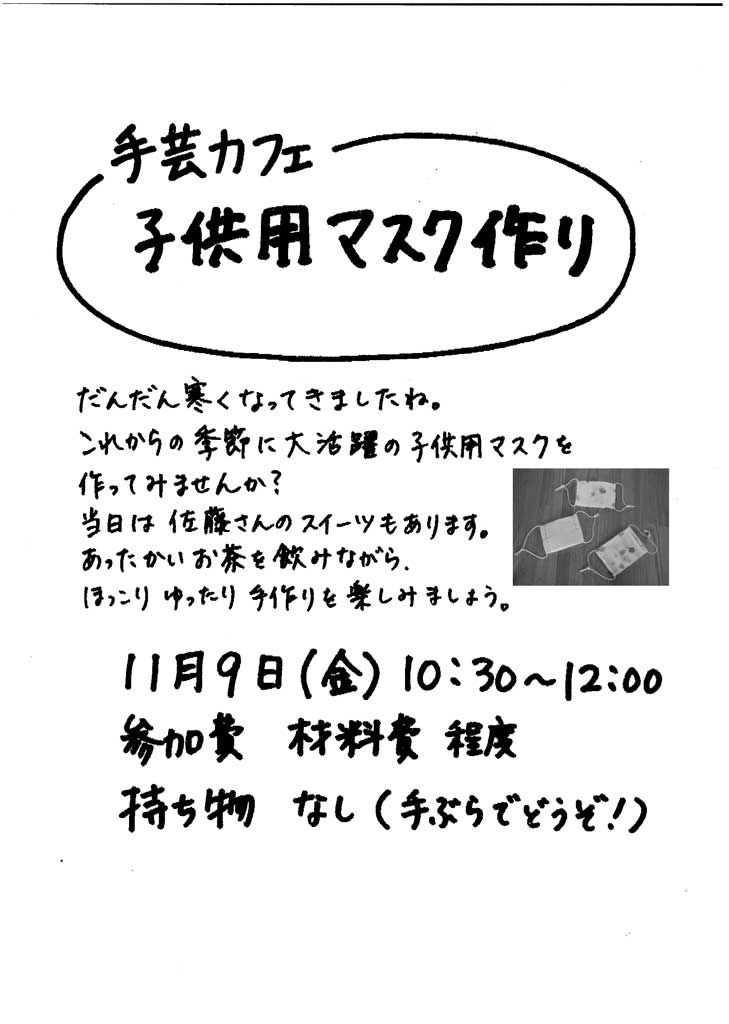 手芸カフェ
子供用マスク作り
だんだん寒くなってきましたね。
これからの季節に大活躍の子供用マスクを
作ってみませんか?
当日は佐藤さんのスイーツもあります。
あったかいお茶を飲みながら、
ほっこり ゆったり 手作りを楽しみましょう。
11月9日(金) 10:30〜12:00
参加費 材料費 程度
持ち物 なし(手ぶらでどうぞ!)